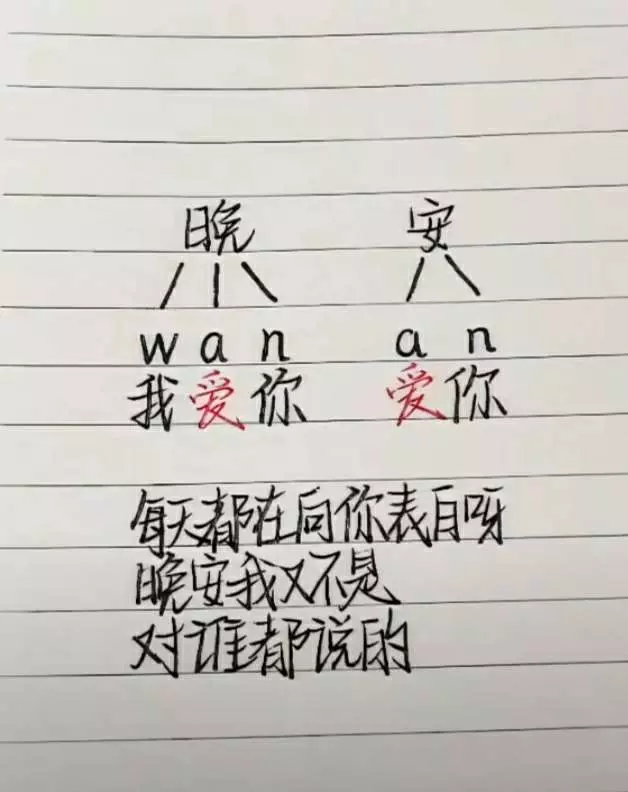 晚 安
w a n a n
我爱你 爱你
每天都在向你表白呀
晚安我又不是
对谁都说的